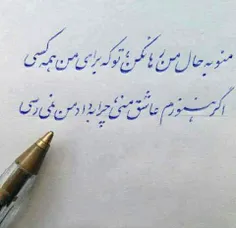 منو به حال من رها نکن، تو که برای من همه کسی
اگر هنوزم عاشق منی، چرا به داد من نمی رسی